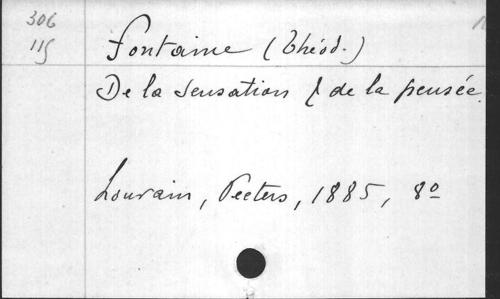 306
115
Fontaine (Théod.)
De la sensation & de la pensée.
Louvain, Peeters, 1885, 8º